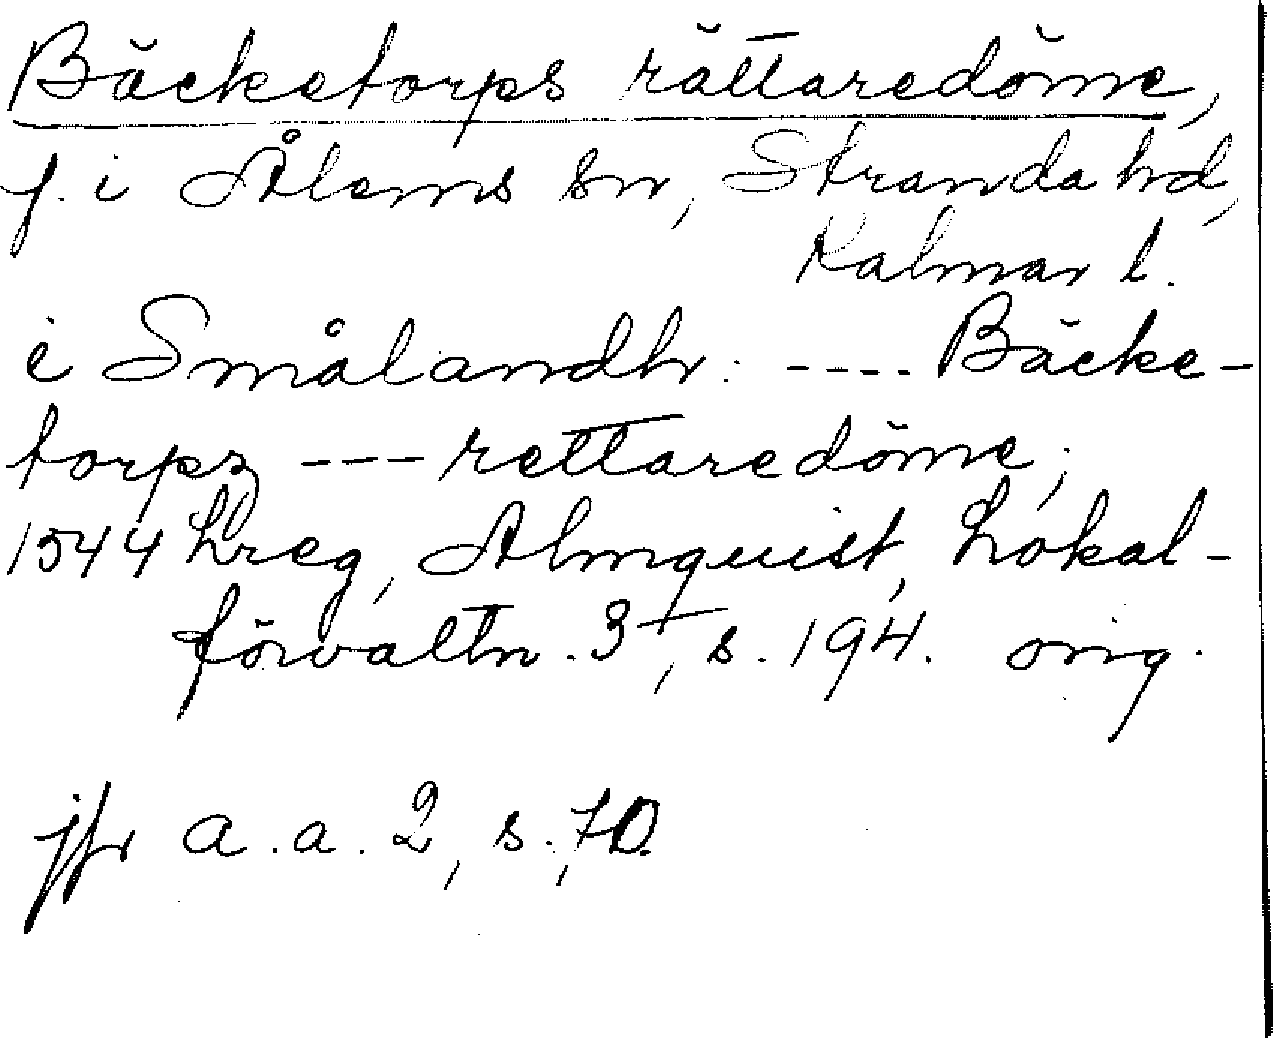 Bäcketorps rättaredöme,
f. i Ålems sn, Stranda hd,
Kalmar l.
i Smålandhr: ---- Bäcke-
torpz --- rettaredöme;
1544 Lreg, Almquist, Lokal-
förvaltn. 3, s. 194. orig.
jfr a.a. 2, s. 70.